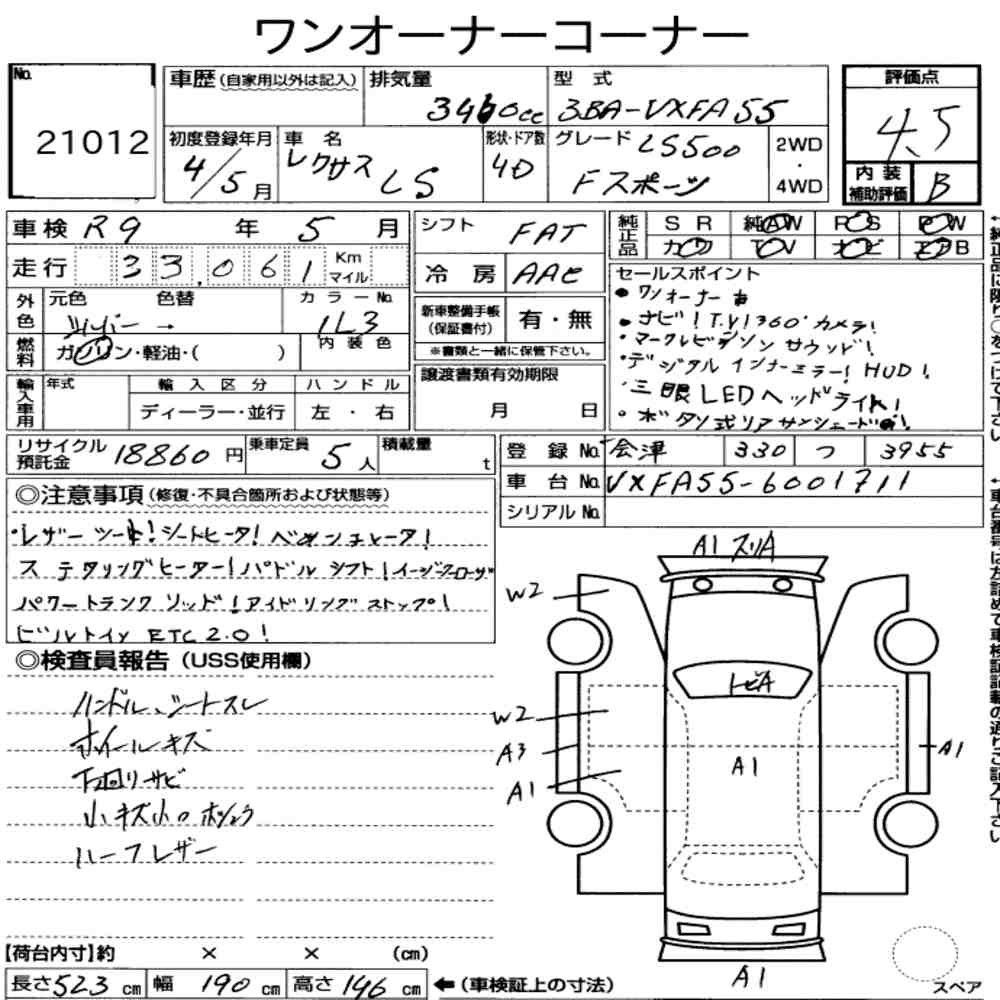 ワンオーナーコーナー
No. 21012
車歴 (自家用以外は記入) 排気量 3460cc 型式 3BA-VXFA55
評価点 4.5
初度登録年月 4/5月 車名 レクサス LS 形状・ドア数 4D グレード LS500 Fスポーツ 2WD・4WD
内装補助評価 B
車検 R9年 5月 シフト FAT
純正品 SR 純AW PS PW
カワ TV ナビ エアB
走行 33,061 Km マイル 冷房 AAC
外色 元色 シルバー → 色替 カラーNo. 1L3
新車整備手帳(保証書付) 有・無
※書類と一緒に保管下さい。
燃料 ガソリン・軽油・( ) 内装色
輸入車用 年式 輸入区分 ディーラー・並行 ハンドル 左・右
譲渡書類有効期限 月 日
セールスポイント
・ワンオーナー車
・ナビ!T.V!360°カメラ!
・マークレビンソンサウンド!
・デジタルインナーミラー!HUD!
・三眼LEDヘッドライト!
・ボタン式リアサンシェード!
リサイクル預託金 18860円 乗車定員 5人 積載量 t
登録No. 会津 330 つ 3955
車台No. VXFA55-6001711
シリアルNo.
◎注意事項(修復・不具合箇所および状態等)
・レザーシート!シートヒータ!ベンチレータ!
ステアリングヒーター!パドルシフト!イージークローザー
パワートランクリッド!アイドリングストップ!
ビルトインETC2.0!
◎検査員報告(USS使用欄)
ハンドル、シートスレ
ホイールキズ
下廻りサビ
小キズ小凹ホシュウ
ハーフレザー
A1 スリA
W2
トビA
W2
A3
A1
A1
A1
A1
スペア
【荷台内寸】約 × × (cm)
長さ523cm 幅190cm 高さ146cm ←(車検証上の寸法)